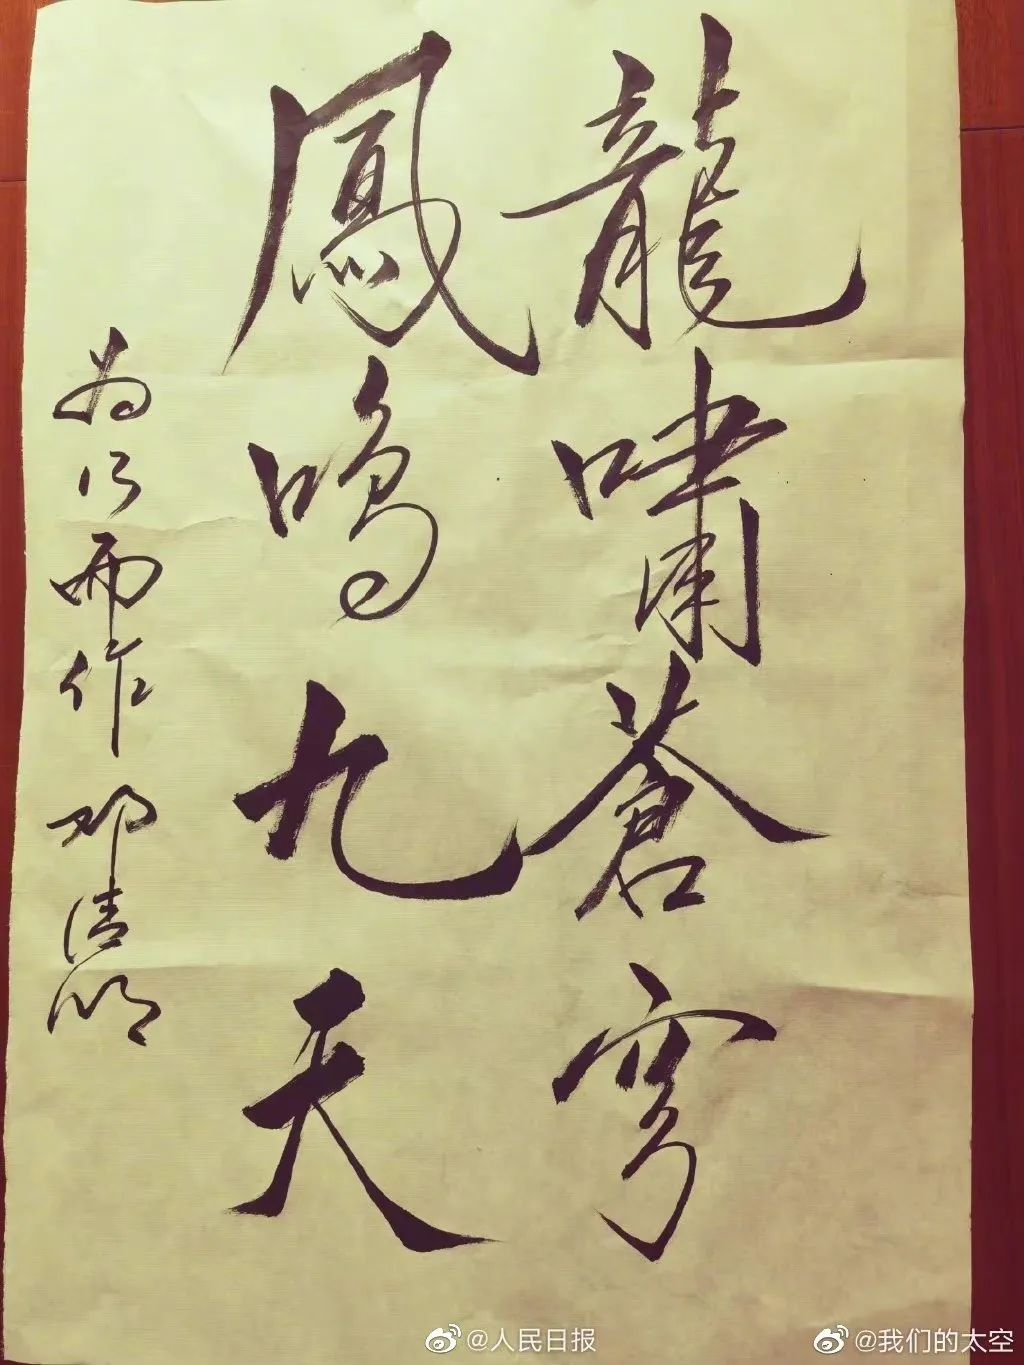 龍嘯蒼穹
鳳鳴九天
为行而作 邓清明
@人民日报
@我们的太空